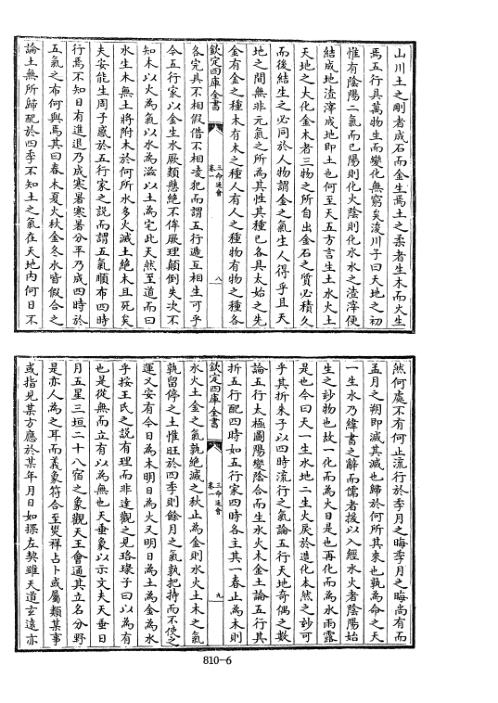 山川土之剛者成石而金生焉土之柔者生木而火生
焉五行具萬物生而變化無窮矣浚川子曰天地之初
惟有陰陽二氣而已陽則化火陰則化水水之渣滓便
結成地渣滓成地即土也何至天五方言生土水火土
天地之大化金木者三物之所自出金石之質必積久
而後結生之必同於人物謂金之氣生人得乎且天
地之間無非元氣之所為其性其種已各具太始之先
金有金之種木有木之種人有人之種物有物之種各
欽定四庫全書
三命通會
卷一
八
各完具不相假借不相凌犯而謂五行遞互相生可乎
今五行家以金生水厥類懸絶不侔厥理顛倒失次不
知木以火為氣以水為滋以土為宅此天然至道而曰
水生木無土將附木於何所水多火滅土絶木且死矣
夫安能生周子惑於五行家之說而謂五氣順布四時
行焉不知日有進退乃成寒暑寒暑分平乃成四時於
五氣之布何與焉其曰春木夏火秋金冬水皆假合之
論土無所歸配於四季不知土之氣在天地内何日不
然何處不有何止流行於季月之晦季月之晦尚有而
孟月之朔即滅其滅也歸於何所其來也孰為命之天
一生水乃緯書之辭而儒者援以入經水火者陰陽始
生之妙物也故一化而為大日是也再化而為水雨露
是也今曰天一生水地二生火戾於造化本然之妙可
乎其折朱子以四時流行之氣論五行天地奇偶之數
論五行太極圖陽變陰合而生水火木金土論五行其
折五行配四時如五行家四時各主其一春止為木則
欽定四庫全書
三命通會
卷一
九
水火土金之氣孰絶滅之秋止為金則水火土木之氣
孰留停之土惟旺於四季則餘月之氣孰把持而不使之
運又安有今日為木明日為火又明日為土為金為水
乎按王氏之說有理而非達觀之見珞琭子曰以為有
也是從無而立有以為無也天垂象以示文夫天垂日
月五星三垣二十八宿之象觀天王會通其立名分野
是亦人為之耳而義象符合至災祥占卜或屬類某事
或指見某方應於某年月日如操左契雖天道玄遠亦
810-6